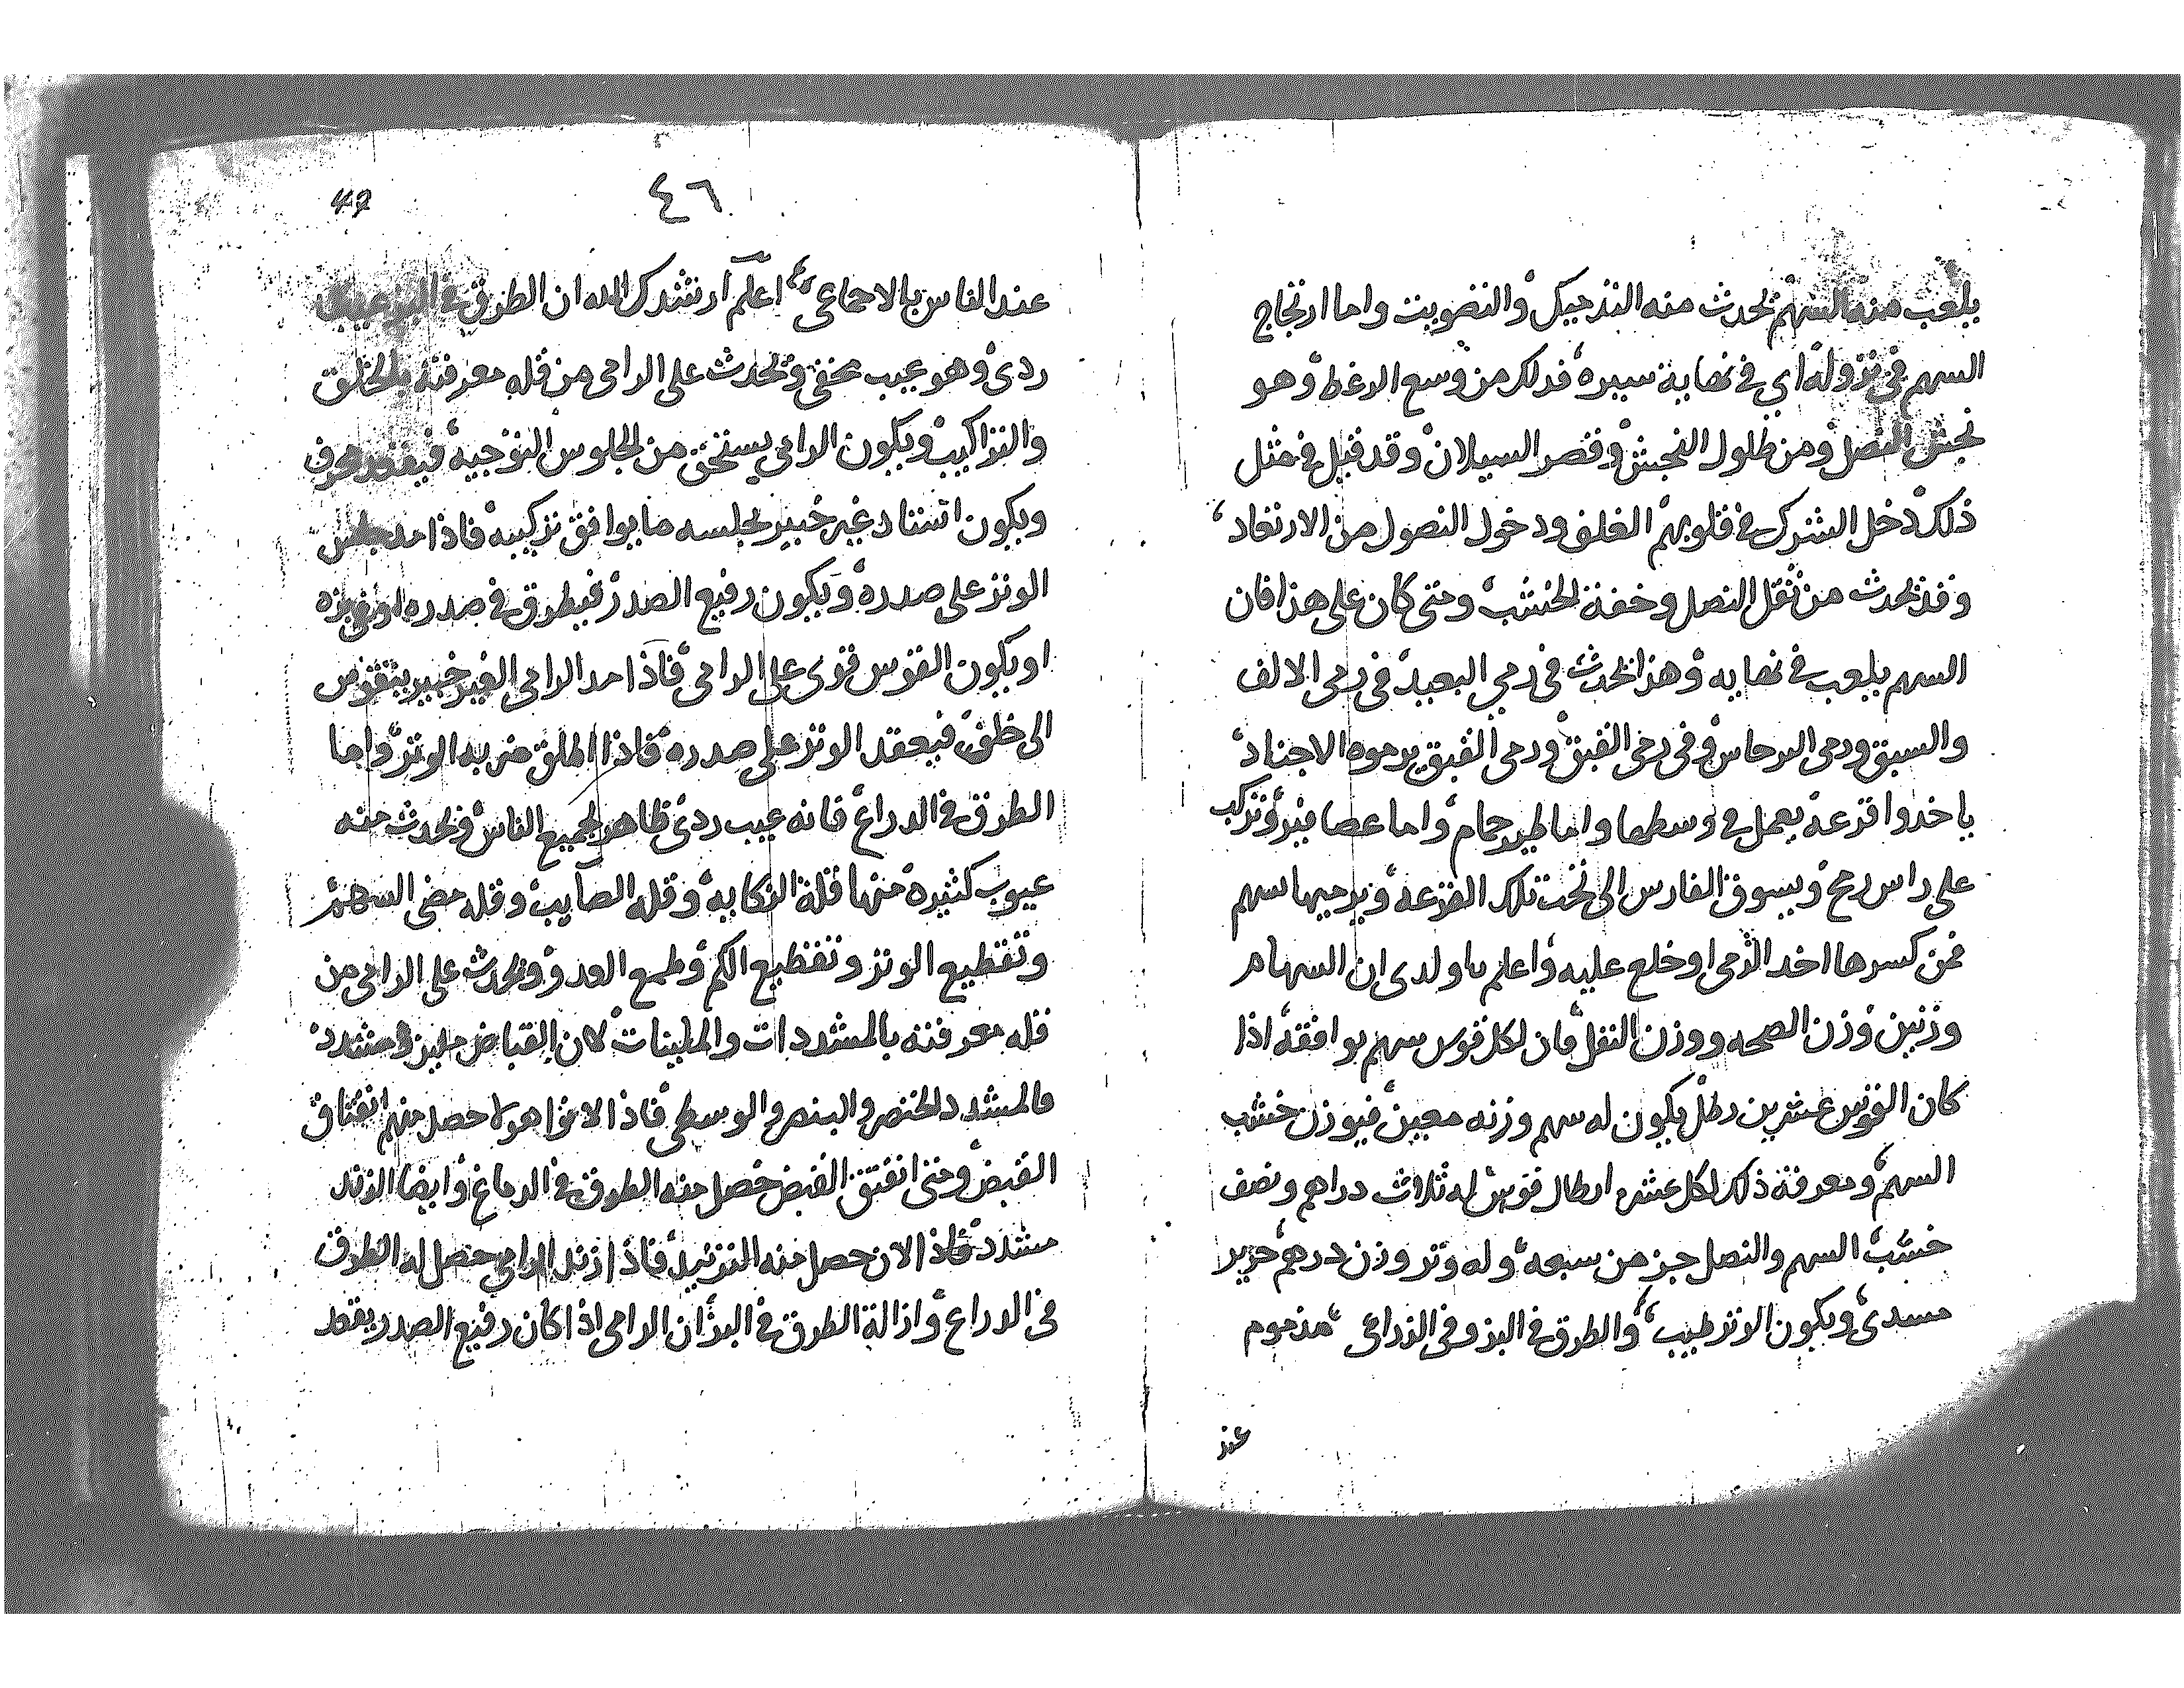 يلعب منه السهم يحدث منه التدحيك والتصويت واما ارتجاج
السهم في نزوله اي في نهاية سيره فدلك من وسع الرغط وهو
نجش النصل ومن طلول النجش وقصر السيلان وقد قيل في مثل
ذلك دخل الشرك في قلوبهم الغلق ودخول النصول من الارتعاد
وقد يحدث من ثقل النصل وخفة الخشب ومتى كان على هذا فان
السهم يلعب في نهايه وهذا يحدث في رمي البعيد في رمى الالف
والسبق ورمى البرحاس وفي رمى القبق ورمى القبق يرموه الاجناد
ياخدوا قرعة يعمل في وسطها واما طير حمام واما عصافير وتركب
على راس رمح ويسوق الفارس الى تحت تلك القرعة ويرميها بسهم
فمن كسرها اخد الرمى او خلع عليه واعلم يا ولدى ان السهام
وزنين وزن الصحه ووزن الثقل فان لكل قوس سهم يوافقه اذا
كان القوس عشرين رطل يكون له سهم وزنه معين فيوزن خشب
السهم ومعرفة ذلك لكل عشره ارطال قوس له ثلاث دراهم ونصف
خشب السهم والنصل جز من سبعه وله وتر وزن درهم حرير
مسدى ويكون الوتر طيب والطرق في البز وفي الذراعى مذموم
عند
٤٦
عند الناس بالاجماعى اعلم ارشدك الله ان الطرق في البز عيب
ردى وهو عيب مخفى ويحدث على الرامى من قله معرفته بالخلق
والتراكيب ويكون الرامى يستحق من الجلوس التوجيه فيقعد محرف
ويكون استناد غير خبير يجلسه ما يوافق تركيبه فاذا مد يجلس
الوتر على صدره ويكون رفيع الصدر فيطرق في صدره او في بزه
او يكون القوس قوى على الرامى فاذا مد الرامى الغير خبير يتقوس
الى خلف فيعقد الوتر على صدره فاذا اطلق ضربه الوتر واما
الطرق في الدراع فانه عيب ردى ظاهر لجميع الناس ويحدث منه
عيوب كثيره منها قلة النكايه وقله الصايب وقله مضى السهم
وتقطيع الوتر وتقطيع الكم وطمع العدو ويحدث على الرامى من
قله معرفته بالمشددات والملينات لان القباض ملين ومشدد
فالمشدد الخنصر والبنصر والوسطى فاذا لانوا هولا حصل منهم انفتاق
القبض ومتى انفتق القبض حصل منه الطرق في الدماغ وايضا الزند
مشدد فاذا لان حصل منه التزنيد فاذا ازند الرامى حصل له الطرق
في الدراع وازالة الطرق في البز ان الرامى اذا كان رفيع الصدر يقعد